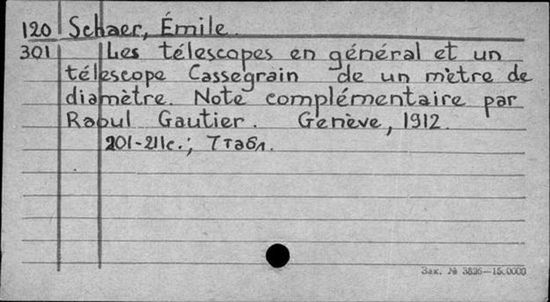 120 Schaer, Émile.
301 Les télescopes en général et un
télescope Cassegrain de un mètre de
diamètre. Note complémentaire par
Raoul Gautier. Genève, 1912.
201-211с.; 7 табл.
Зак. № 3826—15.0000